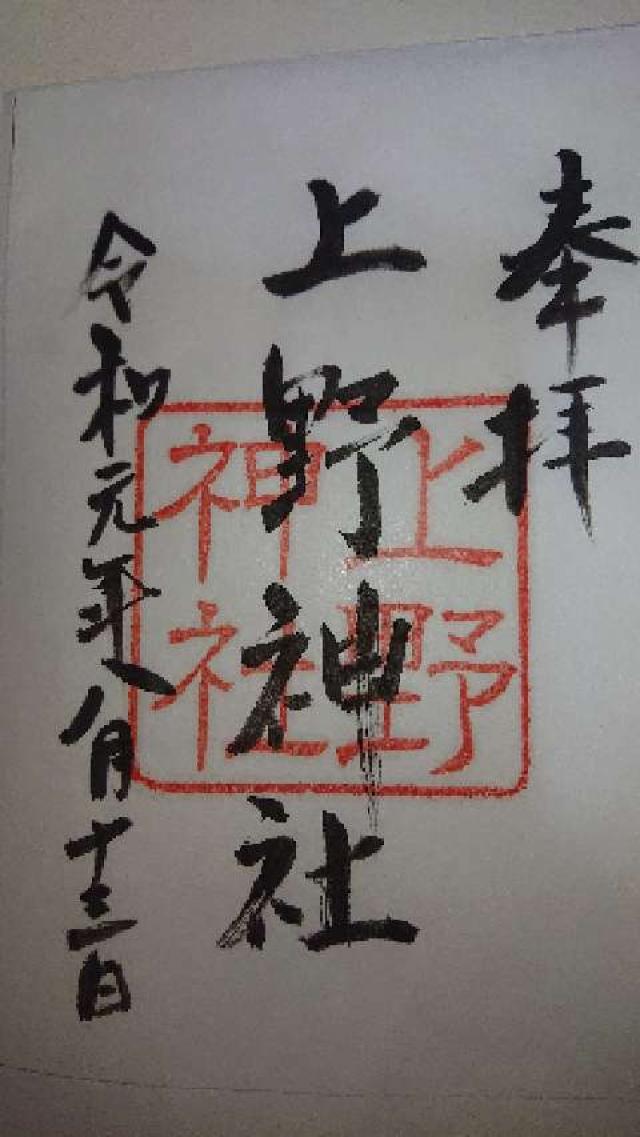 奉拝
上野神社
上野神社
令和元年八月十三日